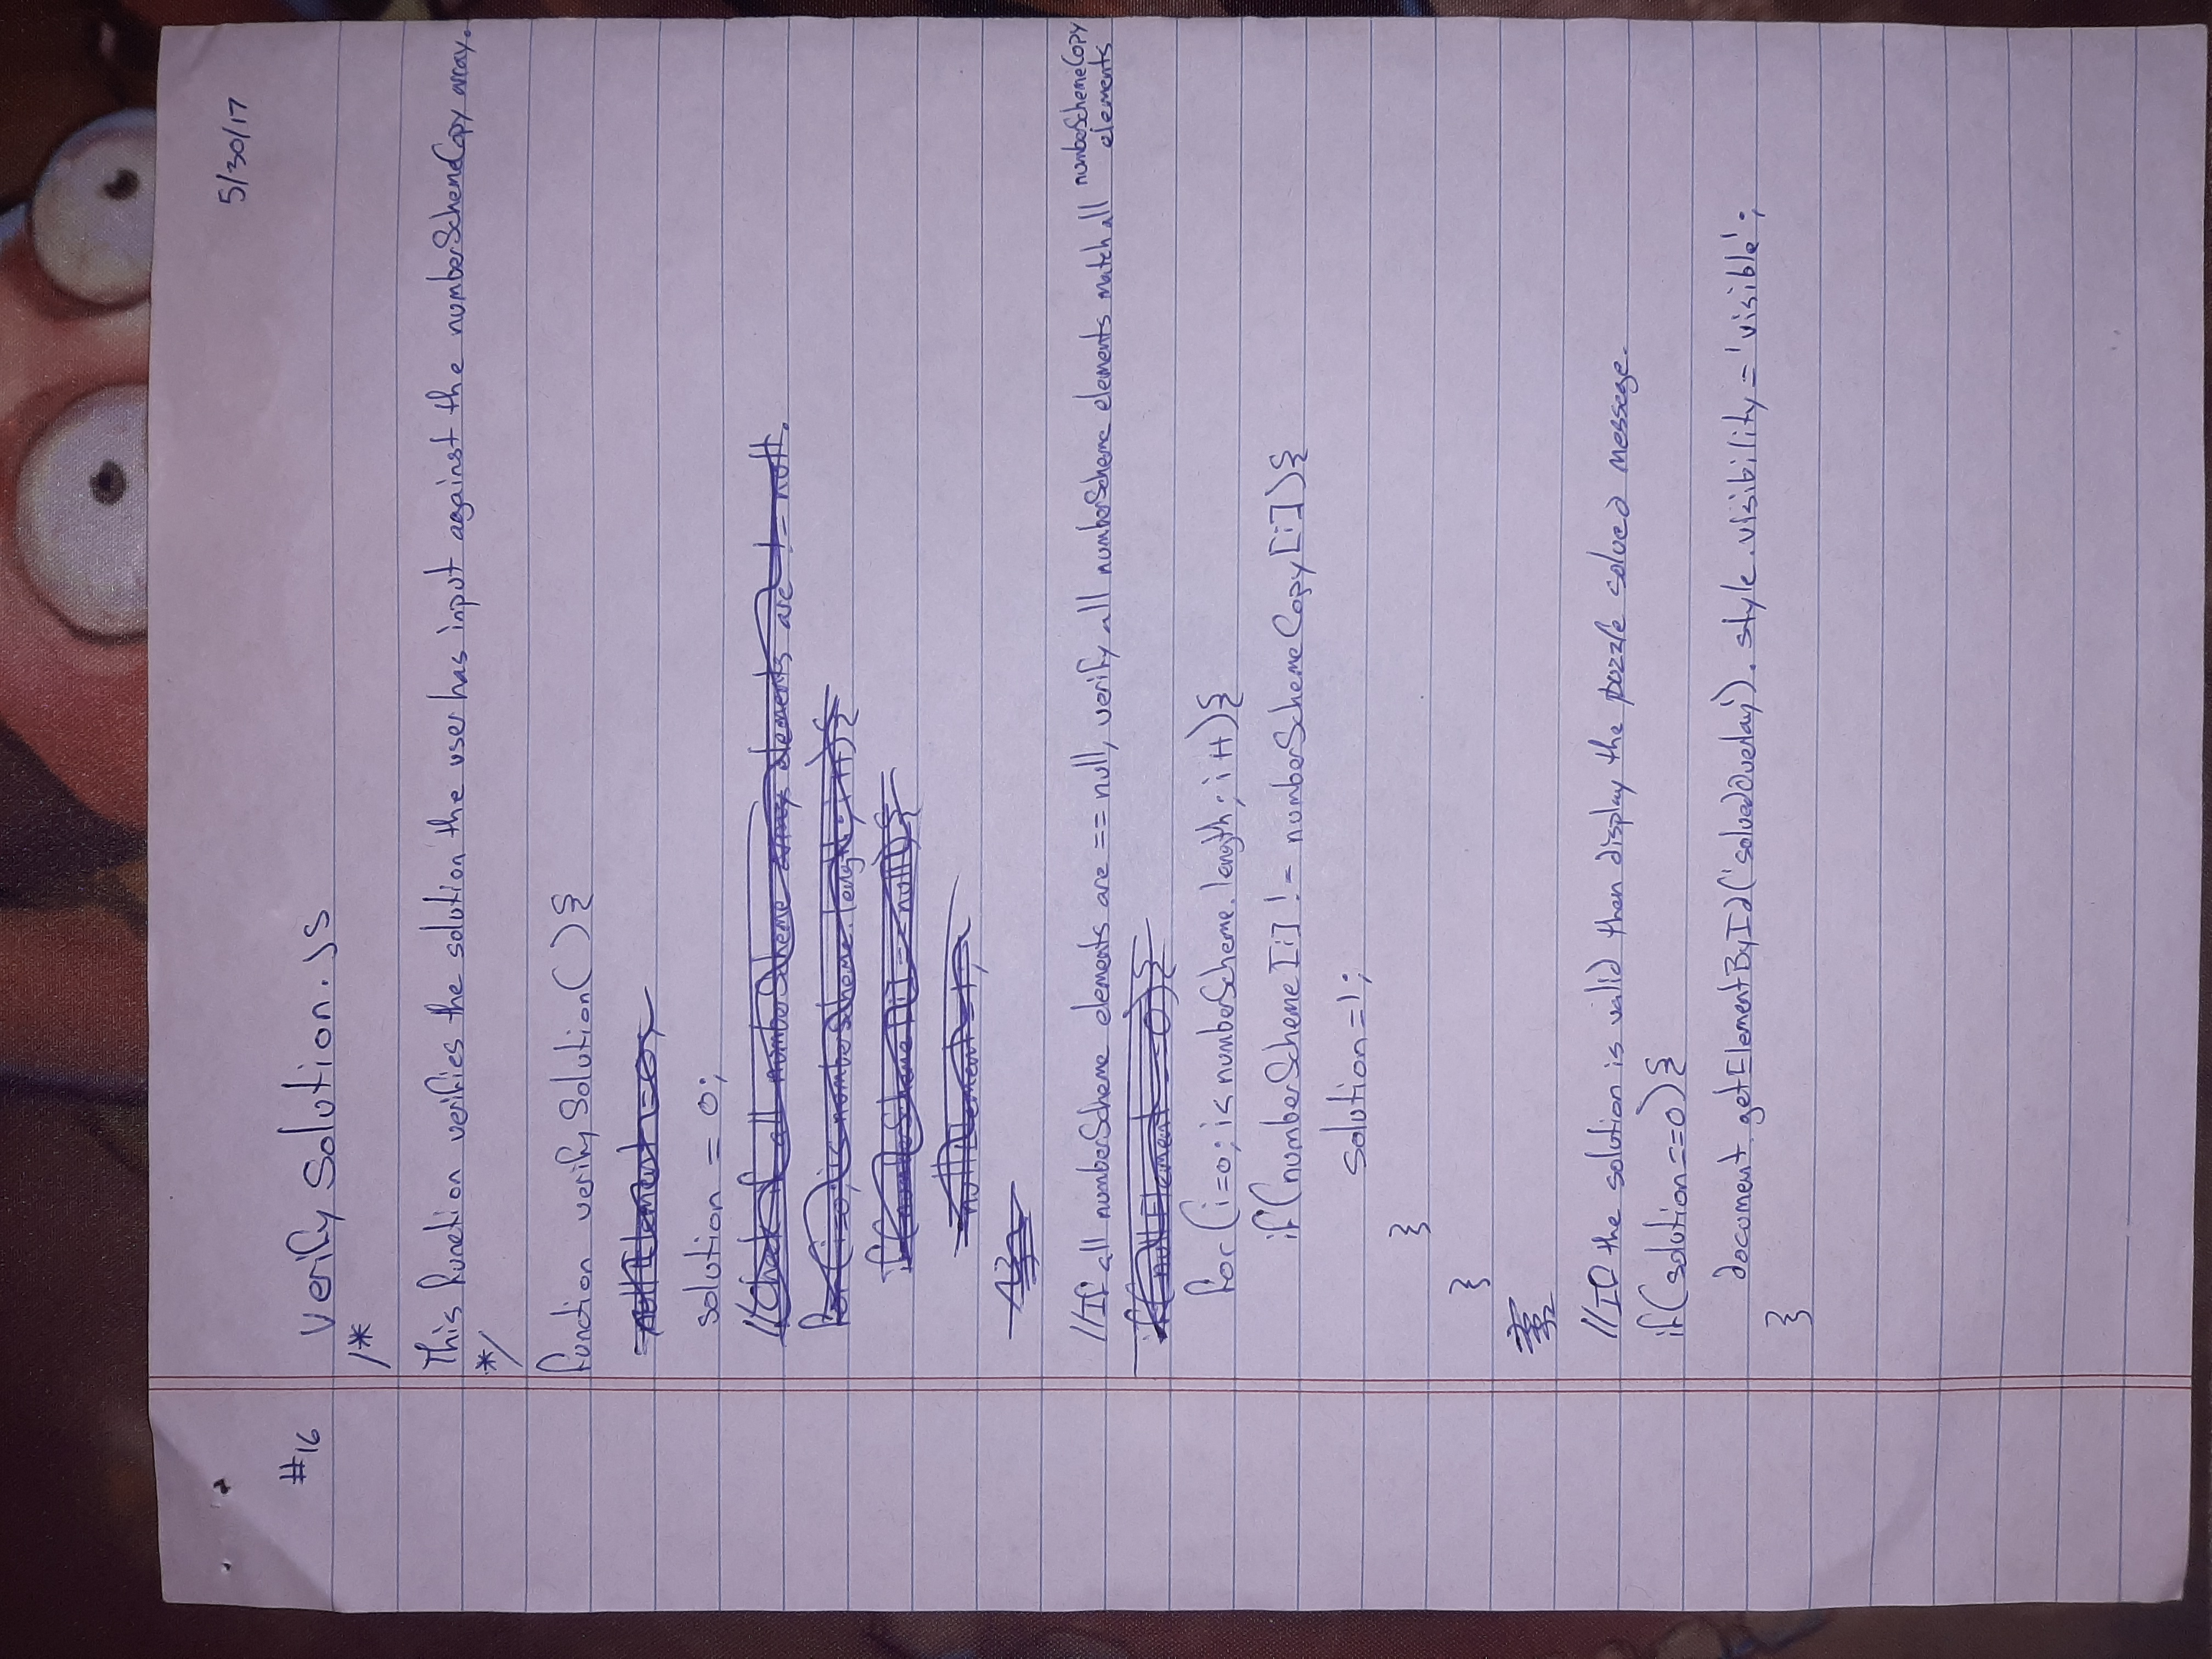 5/30/17
#16 verifySolution.js
/*
This function verifies the solution the user has input against the numberSchemeCopy array.
*/
function verifySolution(){
nullElement = 0;
solution = 0;
//Check if all numberScheme array elements are != null.
for(i=0; i< numberScheme.length; i++){
if(numberScheme[i] == null){
nullElement = 1;
//If all numberScheme elements are == null, verify all numberScheme elements match all numberSchemeCopy elements
if(nullElement == 0){
for(i=0; i< numberScheme.length; i++){
if(numberScheme[i] != numberSchemeCopy[i]){
solution=1;
}
}
//If the solution is valid then display the puzzle solved messege.
if(solution==0){
document.getElementById('solvedOverlay').style.visibility = 'visible';
}